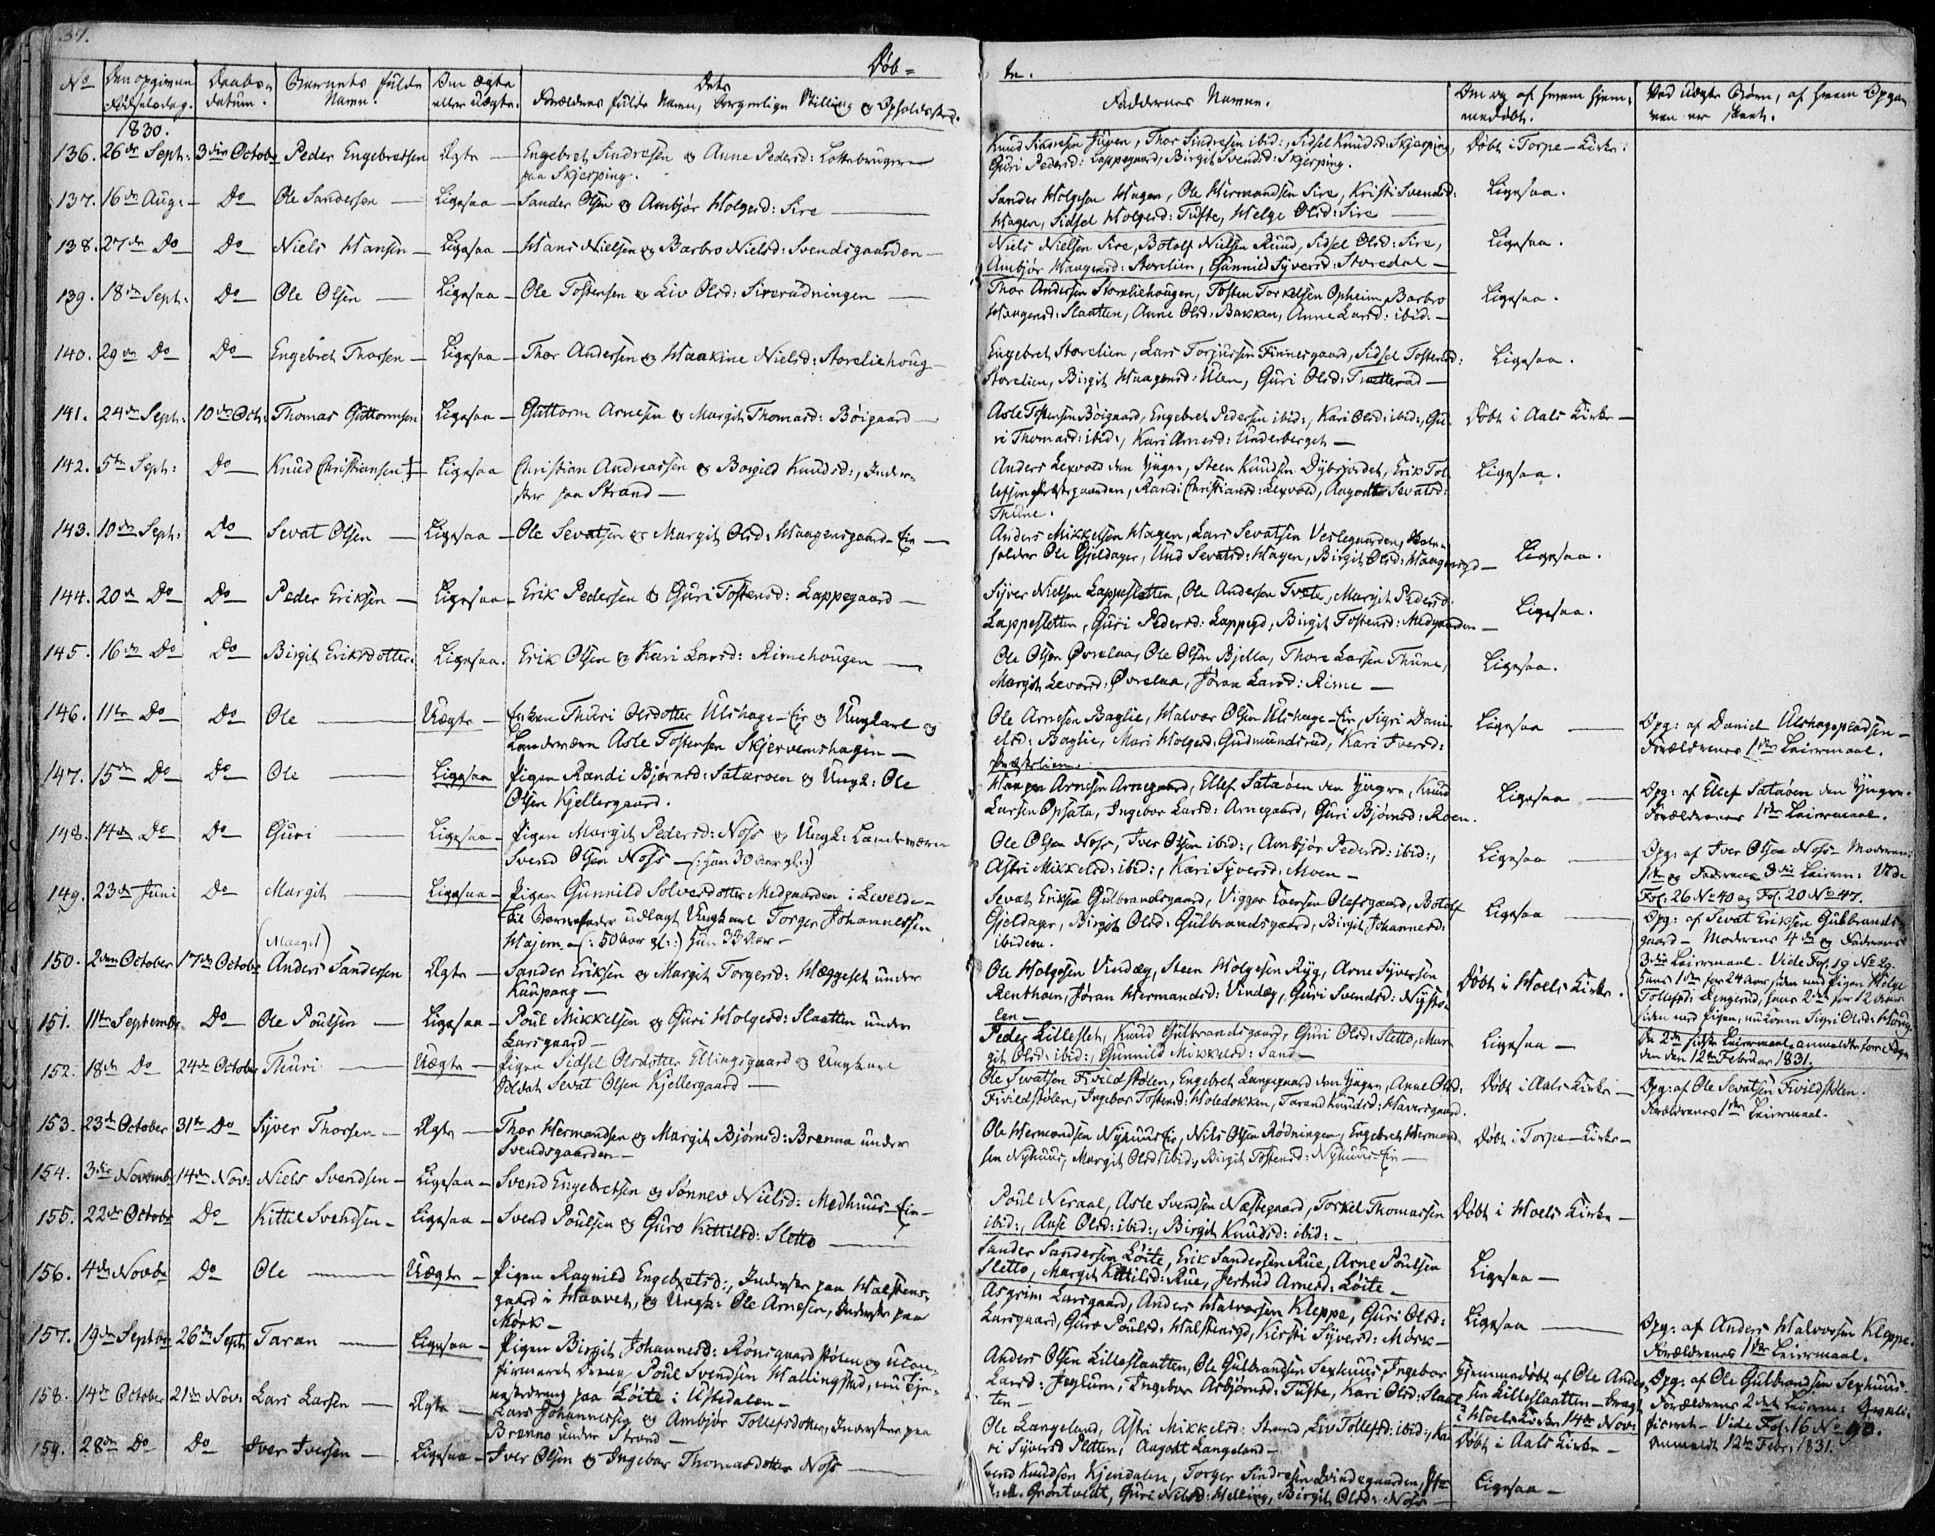 37.
Døb=
te.
No
Den opgivne Fødselsdag.
Daabs-datum.
Barnets fulde Navn.
Om Ægte eller Uægte.
Dets Forældres fulde Navn, borgerlige Stilling og Opholdssted.
Faddernes Navne.
Om og af hvem hjem-medøbt.
Ved Uægte Børn, af hvem Opgaven er skeet.
1830.
136. 26de Sept: 3die Octobr Peder Engebretsen Ægte — Engebret Sindresen og Anne Pedersd:
paa Skjerping.
Knud Sindresen Juven, Thor Sindresen ibid:, Sidsel Knudsd: Skjerping,
Guri Pedersd: Lappegaard, Birgit Svendsd: Skjerping.
Døbt i Torpe-Kirke:
137. 16de Aug: — Do Ole Sandersen — Ligesaa — Sander Olsen og Ambjør Holgersd: Sire —
Sander Holgesen Hagen, Ole Hermandsen Sire, Kristi Svendsd:
Hagen, Sidsel Holgersd: Tufte, Helge Olsd: Sire —
Ligesaa.
138. 27de Do Do Niels Hansen — Ligesaa — Hans Nielsen og Barbro Nielsd: Svendsgaarden —
Niels Nielsen Sire, Botolf Nielsen Ruud, Sidsel Olsd: Sire,
Ambjør Haagensd: Storelien, Gunnild Syversd: Storedal —
Ligesaa.
139. 18de Sept: Do Ole Olsen — Ligesaa — Ole Tostensen og Liv Olsd: Sirerudningen —
Thor Andersen Storeliehougen, Tosten Torkelsen Opheim, Barbro
Haagensd: Slaatten, Anne Olsd: Bakken, Anne Larsd: ibid. —
Ligesaa.
140. 29de Do Do Engebret Thorsen — Ligesaa — Thor Andersen og Haakine Nielsd: Storeliehoug —
Engebret Storelien, Lars Torjursen Finnesgaard, Sidsel Tostensd:
Storelien, Birgit Haagensd: Ulen, Guri Olsd: Trætterud —
Ligesaa.
141. 24de Sept: 10de Oct: Thomas Guttormsen Ligesaa — Guttorm Arnesen og Margit Thomasd: Böigaard —
Asle Tostensen Böigaard, Engebret Pedersen ibid:, Kari Olsd: ibid:, Gu-
ri Thomasd: ibid:, Kari Arnesd: Underberget —
Døbt i Aals Kirke —
142. 5te Sept: Do Knud Christiansen ‡ Ligesaa Christian Andreassen og Borgild Knudsd:, Inder-
ster paa Strand —
Anders Lexvold den Yngre, Steen Knudsen Dybsjordet, Erik Tol-
lefsen Præstegaarden, Randi Christiansd: Lexvold, Aagodt Sevatsd:
Thune.
Ligesaa.
143. 10de Sept: Do Sevat Olsen — Ligesaa — Ole Sevatsen og Margit Olsd: Haagensgaard-Eie —
Anders Mikkelsen Hagen, Lars Sevatsen Veslegaarden,
Ole Gjeldager, Und Sevatsd: Hagen, Birgit Olsd: Haagensgd —
Ligesaa.
144. 20de Do Do Peder Eriksen — Ligesaa — Erik Pedersen og Guri Tostensd: Lappegaard —
Syver Nielsen Lappesletten, Ole Andersen Tvete, Margit Pedersd:
Lappesletten, Guri Pedersd: Lappegd, Birgit Tostensd: Medgaarden —
Ligesaa.
145. 16de Do Do Birgit Eriksdotter. Ligesaa. Erik Olsen og Kari Larsd: Rimehougen —
Ole Olsen Øvrelaa, Ole Olsen Bjella, Thore Larsen Thune,
Margit Levorsd: Øvrelaa, Jøran Larsd: Rime —
Ligesaa.
146. 11te Do Do Ole — Uægte — Enken Thuri Olsdotter Ulshage-Eie og Ungkarl og
Landeværn Asle Tostensen Skjervemshagen —
Ole Arnesen Baglie, Halvor Olsen Ulshage-Eie, Sigri Dani-
elsd: Baglie, Mari Holgersd: Gudmundsrud, Kari Iversd:
Ligesaa —
Opg: af Daniel Ulshagepladsen —
Forældrenes 1ste Leiermaal.
147. 15de Do Do Ole — Ligesaa Pigen Randi Bjørnsd: Sataøen og Ungk: Ole
Olsen Kjellergaard.
Haagen Arnesen Arnegaard, Ellef Sataøen den Yngre, Knud
Larsen Opsata, Ingebor Larsd: Arnegaard, Guri Bjørnsd: Roen.
Ligesaa —
Opg: af Ellef Sataöen den Yngre.
Forældrenes 1ste Leiermaal.
148. 14de Do Do Guri — Ligesaa — Pigen Margit Pedersd: Noss og Ungk: Landeværn
Svend Olsen Noss — (: hun 30 Aar gl:)
Ole Olsen Noss, Iver Olsen ibid:, Ambjør Pedersd: ibid:,
Astri Mikkelsd: ibid:, Kari Syversd: Moen —
Ligesaa —
Opg: af Iver Olsen Noss. Moderens
1ste og Faderens 3die Leierm: Vide
Fol. 26 No 40 og Fol. 20 No 47.
149. 23de Juni Do Margit — Ligesaa — Pigen Gunnild Solversdotter Medgaarden i Levelde —
til Barnefader udlagt Ungkarl Torger Johannessen
Hajem — (: 50 Aar gl:) hun 33 Aar —
Sevat Eriksen Gulbrandsgaard, Vigger Iversen Olefsgaard, Botolf
Gjeldager, Birgit Olsd: Gulbrandsgaard, Birgit Johannesd:
ibidem.
Ligesaa —
Opg: af Sevat Eriksen Gulbrands-
gaard — Moderens 4de og Faderens
3die Leiermaal — Vide Fol. 19 No 29.
hans 1ste for 24 Aar siden med Pigen Helge
Tollefsd: hans 2det for 12 Aar
siden med Pigen, nu Konen Sigri Olsd: Houg.
De 2de sidste Leiermaal anmeldte for Fog-
den den 12te Februar 1831.
(Margit)
150. 2den October 17de October Anders Sandersen Ægte — Sander Eriksen og Margit Torgersd: Hæggeset under
Kaupang —
Ole Holgesen Vindæg, Steen Holgesen Ryg, Arne Syversen
Renthoen, Jøran Hermandsd: Vindeg, Guri Svendsd: Nystö-
len —
Døbt i Hoels Kirke.
151. 11te September Do Ole Poulsen — Ligesaa — Poul Mikkelsen og Guri Holgersd: Slaatten under
Larsgaard —
Peder Lilleslet, Knud Gulbrandsgaard, Guri Olsd: Sletto, Mar-
git Olsd: ibid:, Gunnild Mikkelsd: Sand —
Ligesaa —
152. 18de Do 24de October Thuri — Uægte — Pigen Sidsel Olsdotter Ellingsgaard og Ungkarl
Soldat Sevat Olsen Kjellergaard —
Ole Sevatsen Fivildstölen, Engebret Langegaard den Yngre, Anne Olsd:
Fivildstölen, Ingebor Tostensd: Holedokken, Tarand Knudsd: Haversgaard.
Døbt i Aals Kirke —
Opg: af Ole Sevatsen Fivildstölen.
Forældrenes 1ste Leiermaal
153. 23de October 31te Do Syver Thorsen — Ægte — Thor Hermandsen og Margit Bjørnsd: Brenna under
Svendsgaarden —
Ole Hermandsen Nyhuus Eie, Nils Olsen Rødningen, Engebret Hermand-
sen Nyhuus, Margit Olsd ibid:, Birgit Tostensd: Nyhuus-Eie —
Døbt i Torpe-Kirke —
154. 3die Novemb: 14de Nov: Niels Svendsen — Ligesaa — Svend Engebretsen og Sønnev Nielsd: Medhuus-Eie —
Poul Neraal, Asle Svendsen Næstegaard, Torkel Thomassen
ibid:, Anse Olsd: ibid:, Birgit Knudsd: ibid: —
Døbt i Hoels Kirke —
155. 22de Octobr Do Kittil Svendsen — Ligesaa — Svend Poulsen og Guro Kittilsd: Sletto —
Sander Sandersen Löite, Erik Sandersen Rue, Arne Poulsen
Sletto, Margit Kittilsd: Rue, Jertrud Arnesd: Löite —
Ligesaa —
156. 4de Novbr Do Ole — Uægte — Pigen Ragnild Engebretsd:, Inderste paa Halstens-
gaard i Haavet, og Ungk: Ole Arnesen, Inderste paa
Mörk —
Asgrim Larsgaard, Anders Halvorsen Kleppe, Guri Olsd:
Larsgaard, Guro Poulsd: Halstensgd, Kirsti Syversd: Mörk —
Ligesaa —
Opg: af Anders Halvorsen Kleppe.
Forældrenes 1ste Leiermaal.
157. 19de Septbr 26de Septr Taran — Ligesaa — Pigen Birgit Johannesd: Rönsgaardstölen og ucon-
firmeret Dreng Poul Svendsen Hallingstad, nu Tje-
nestedreng paa Löite i Ustedalen —
Anders Olsen Lilleslaatten, Ole Gulbrandsen Sexhuus, Ingebor
Larsd: Jeglum, Ingebor Asbjørnsd: Tufte, Kari Olsd: Slaat-
ten —
Hjemmedöbt af Ole Anders-
sen Lilleslaatten — bragt
i Hoels Kirke 14de Nov:
Opg: af Ole Gulbrandsen Sexhuus.
Forældrenes 2det Leierm:
Vide Fol. 16 No 90.
anmeldt 12te Febr: 1831.
158. 14de October 21de Nov: Lars Larsen — Ægte — Lars Johannessen og Ambjör Tollefsdotter, Inderster paa
Brenno under Strand —
Ole Langeland, Astri Mikkelsd: Strand, Liv Tollefsd: ibid:, Ka-
ri Syversd Pletten, Aagodt Langeland —
Döbt i Aals Kirke —
159. 28de Do Do Iver Iversen — Ligesaa — Iver Olsen og Ingebor Thomasdotter Noss —
Svend Knudsen Kjendalen, Torger Sindresen
Grøntvedt, Guri Nilsd: Helling, Birgit Olsd: Noss —
Ligesaa —